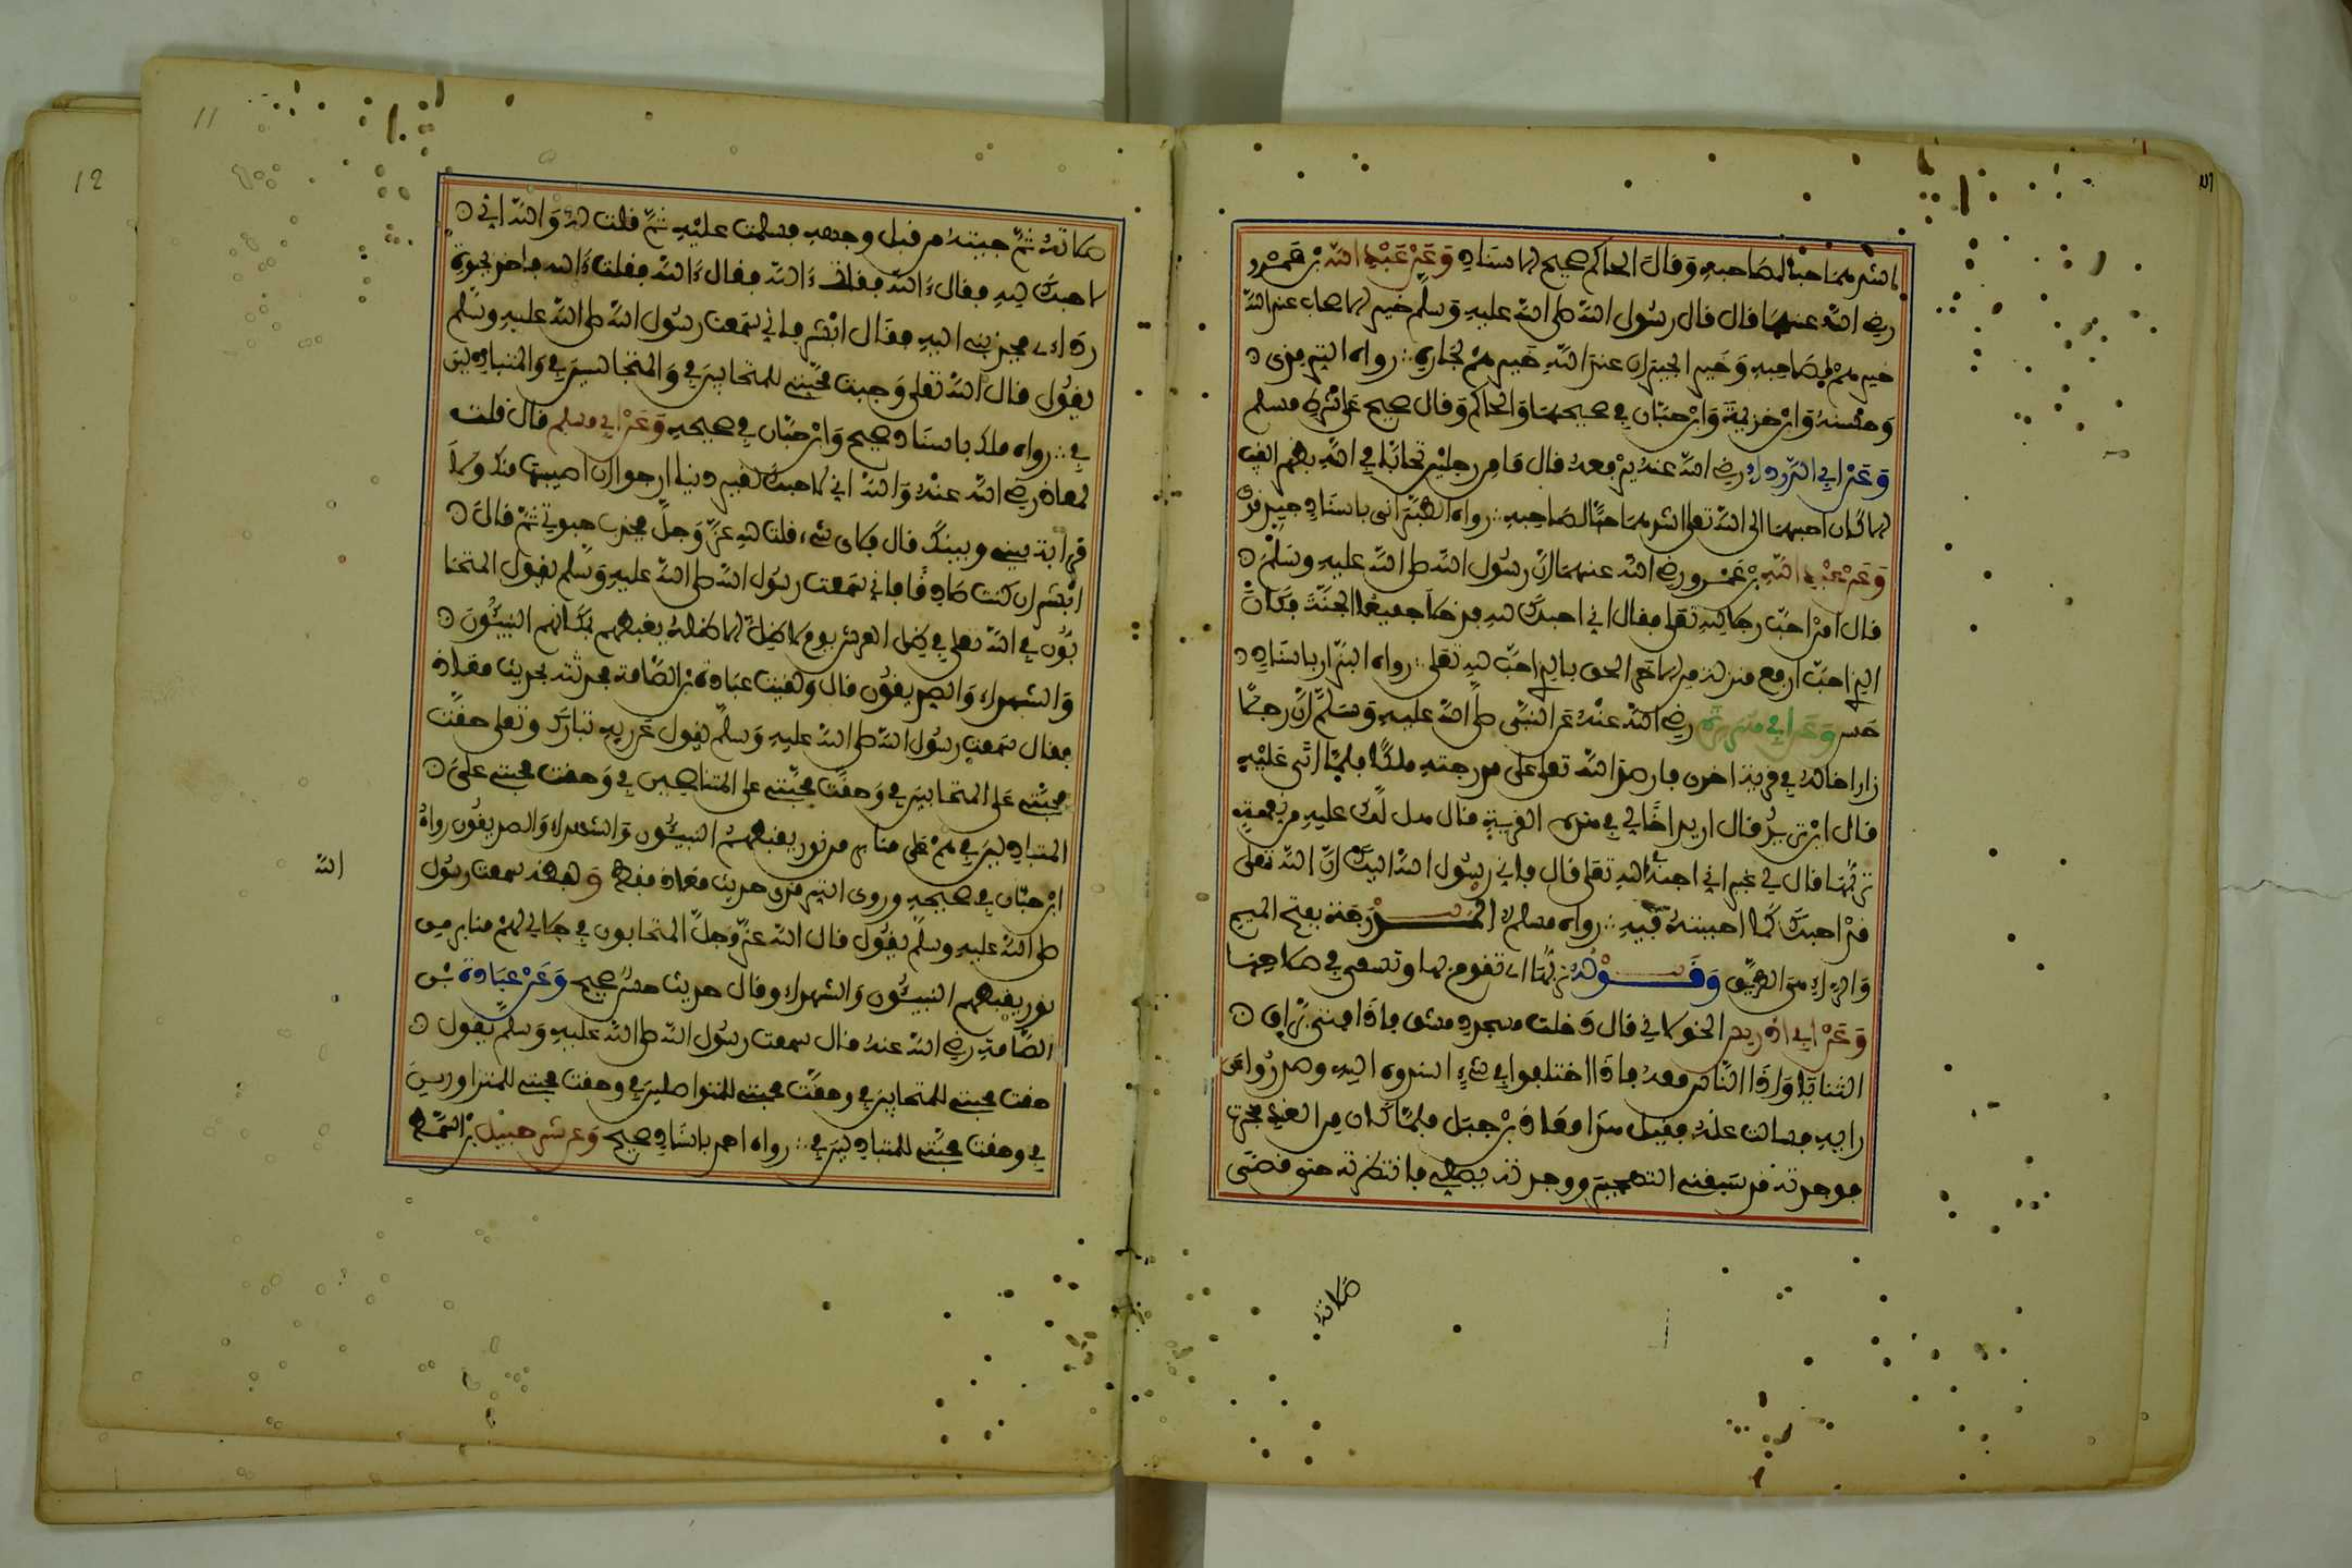 اشدهما حبا لصاحبه وقال الحاكم صحيح الاسناد وعن عبد الله بن عمرو
رضي الله عنهما قال قال رسول الله صلى الله عليه وسلم خير الاصحاب عند الله
خيرهم لصاحبه وخير الجيران عند الله خيرهم لجاره رواه الترمذي
وحسنه وابن خزيمة وابن حبان في صحيحهما والحاكم وقال صحيح على شرط مسلم
وعن ابي الدرداء رضي الله عنه يرفعه قال ما من رجلين تحابا في الله بظهر الغيب
الا كان احبهما الى الله تعلى اشدهما حبا لصاحبه رواه الطبراني باسناد جيد قوي
وعن عبد الله بن عمرو رضي الله عنهما ان رسول الله صلى الله عليه وسلم
قال من احب رجلا لله تعلى فقال اني احبك لله فدخلا جميعا الجنة فكان
الذي احب ارفع منزلة من الاخر الحق بالذي احب لله تعلى رواه البزار باسناد
حسن وعن ابي هريرة رضي الله عنه عن النبي صلى الله عليه وسلم ان رجلا
زار اخا له في قرية اخرى فارصد الله تعلى على مدرجته ملكا فلما اتى عليه
قال اين تريد قال اريد اخا لي في هذه القرية قال هل لك عليه من نعمة
تربها قال لا غير اني احبه في الله تعلى قال فاني رسول الله اليك ان الله تعلى
قد احبك كما احببته فيه رواه مسلم المدرجة بفتح الميم
والراء هي الطريق وقوله تربها اي تقوم بها وتسعى في صلاحها
وعن ابي ادريس الخولاني قال دخلت مسجد دمشق فاذا فتى براق
الثنايا واذا الناس معه فاذا اختلفوا في شيء اسندوه اليه وصدروا عن
رايه فسالت عنه فقيل هذا معاذ بن جبل فلما كان من الغد هجرت
فوجدته قد سبقني التهجير ووجدته يصلي فانتظرته حتى قضى
صلاته
صلاته ثم جيته من قبل وجهه فسلمت عليه ثم قلت له والله اني
لاحبك لله فقال ءالله فقلت ءالله فقال ءالله فقلت ءالله فاخذ بحبوة
رداءي فجذبني اليه فقال ابشر فاني سمعت رسول الله صلى الله عليه وسلم
يقول قال الله تعلى وجبت محبتي للمتحابين في والمتجالسين في والمتباذلين
في رواه ملك باسناد صحيح وابن حبان في صحيحه وعن ابي مسلم قال قلت
لمعاذ رضي الله عنه والله اني لاحبك لغير دنيا ارجوا ان اصيبها منك ولا
قرابة بيني وبينك قال فلاي شيء قلت لله عز وجل فجذب حبوتي ثم قال
ابشر ان كنت صادقا فاني سمعت رسول الله صلى الله عليه وسلم يقول المتحا
بون في الله تعلى في ظل العرش يوم لا ظل الا ظله يغبطهم بمكانهم النبيئون
والشهداء والصديقون قال ولقيت عبادة بن الصامت فحدثته بحديث معاذ
فقال سمعت رسول الله صلى الله عليه وسلم يقول عن ربه تبارك وتعلى حقت
محبتي على المتحابين في وحقت محبتي على المتناصحين في وحقت محبتي على
المتباذلين في هم على منابر من نور يغبطهم النبيئون والشهداء والصديقون رواه
ابن حبان في صحيحه وروى الترمذي حديث معاذ فقط ولفظه سمعت رسول
الله
صلى الله عليه وسلم يقول قال الله عز وجل المتحابون في جلالي لهم منابر من
نور يغبطهم النبيئون والشهداء وقال حديث حسن صحيح وعن عبادة بن
الصامت رضي الله عنه قال سمعت رسول الله صلى الله عليه وسلم يقول
حقت محبتي للمتحابين في وحقت محبتي للمتواصلين في وحقت محبتي للمتزاورين
في وحقت محبتي للمتباذلين في رواه احمد باسناد صحيح وعن شرحبيل بن السمط
11
12